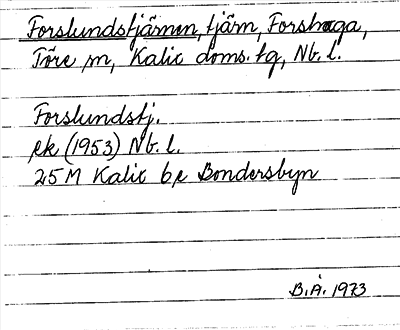 Forslundstjärnen, tjärn, Forshaga,
Töre sn, Kalix doms. tg, Nb. l.
Forslundstj.
ek (1953) Nb. l.
25M Kalix 6e Bondersbyn
B.Å. 1973